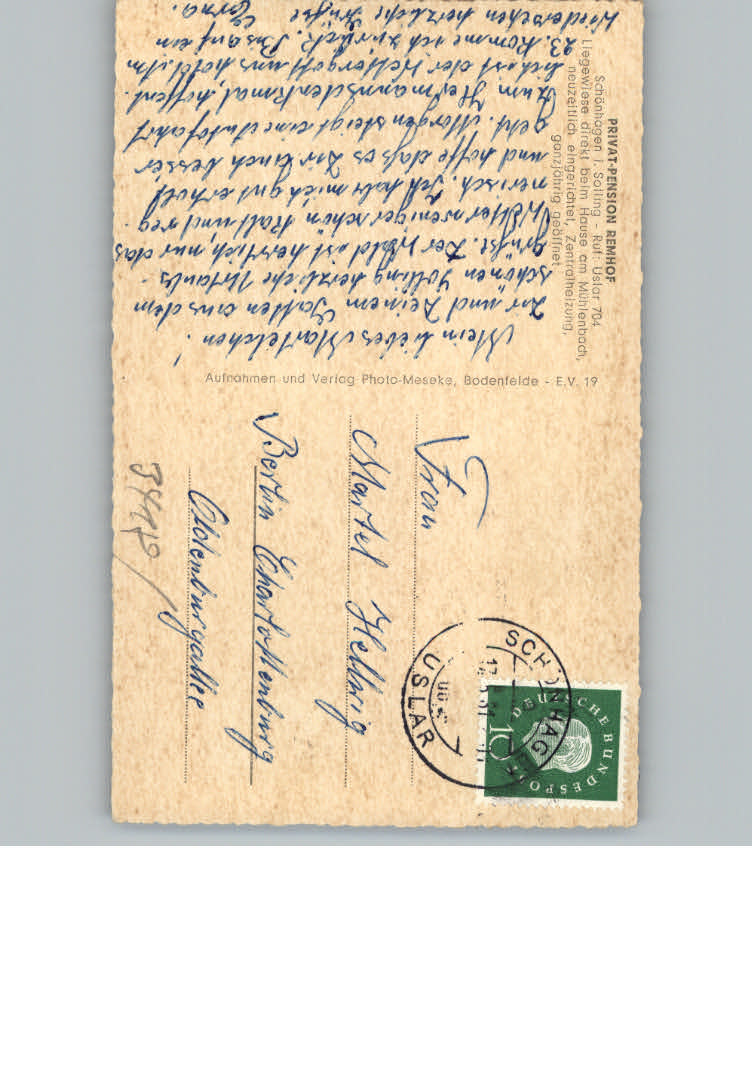 PRIVAT-PENSION REMHOF
Schönhagen i. Solling - Ruf: Uslar 704
Liegewiese direkt beim Hause am Mühlenbach,
neuzeitlich eingerichtet, Zentralheizung,
ganzjährig geöffnet
Mein liebes Martelchen!
Dir und Deinem Gatten aus dem
schönen Solling herzliche Urlaubs-
grüße. Der Wald ist herrlich, nur das
Wetter weniger schön kalt und reg-
nerisch. Ich habe mich gut erholt
und hoffe daß es Dir auch besser
geht. Morgen steigt eine Autofahrt
zum Hermannsdenkmal, hoffent-
lich ist der Wettergott uns hold. Am
23. komme ich zurück. Bis auf ein
Wiedersehen herzliche Grüße
Erna.
Aufnahmen und Verlag Photo-Meseke, Bodenfelde - E.V. 19
Frau
Martel Hellwig
Berlin Charlottenburg
Oldenburgallee
SCHÖNHAGEN
USLAR
DEUTSCHE BUNDESPOST
10